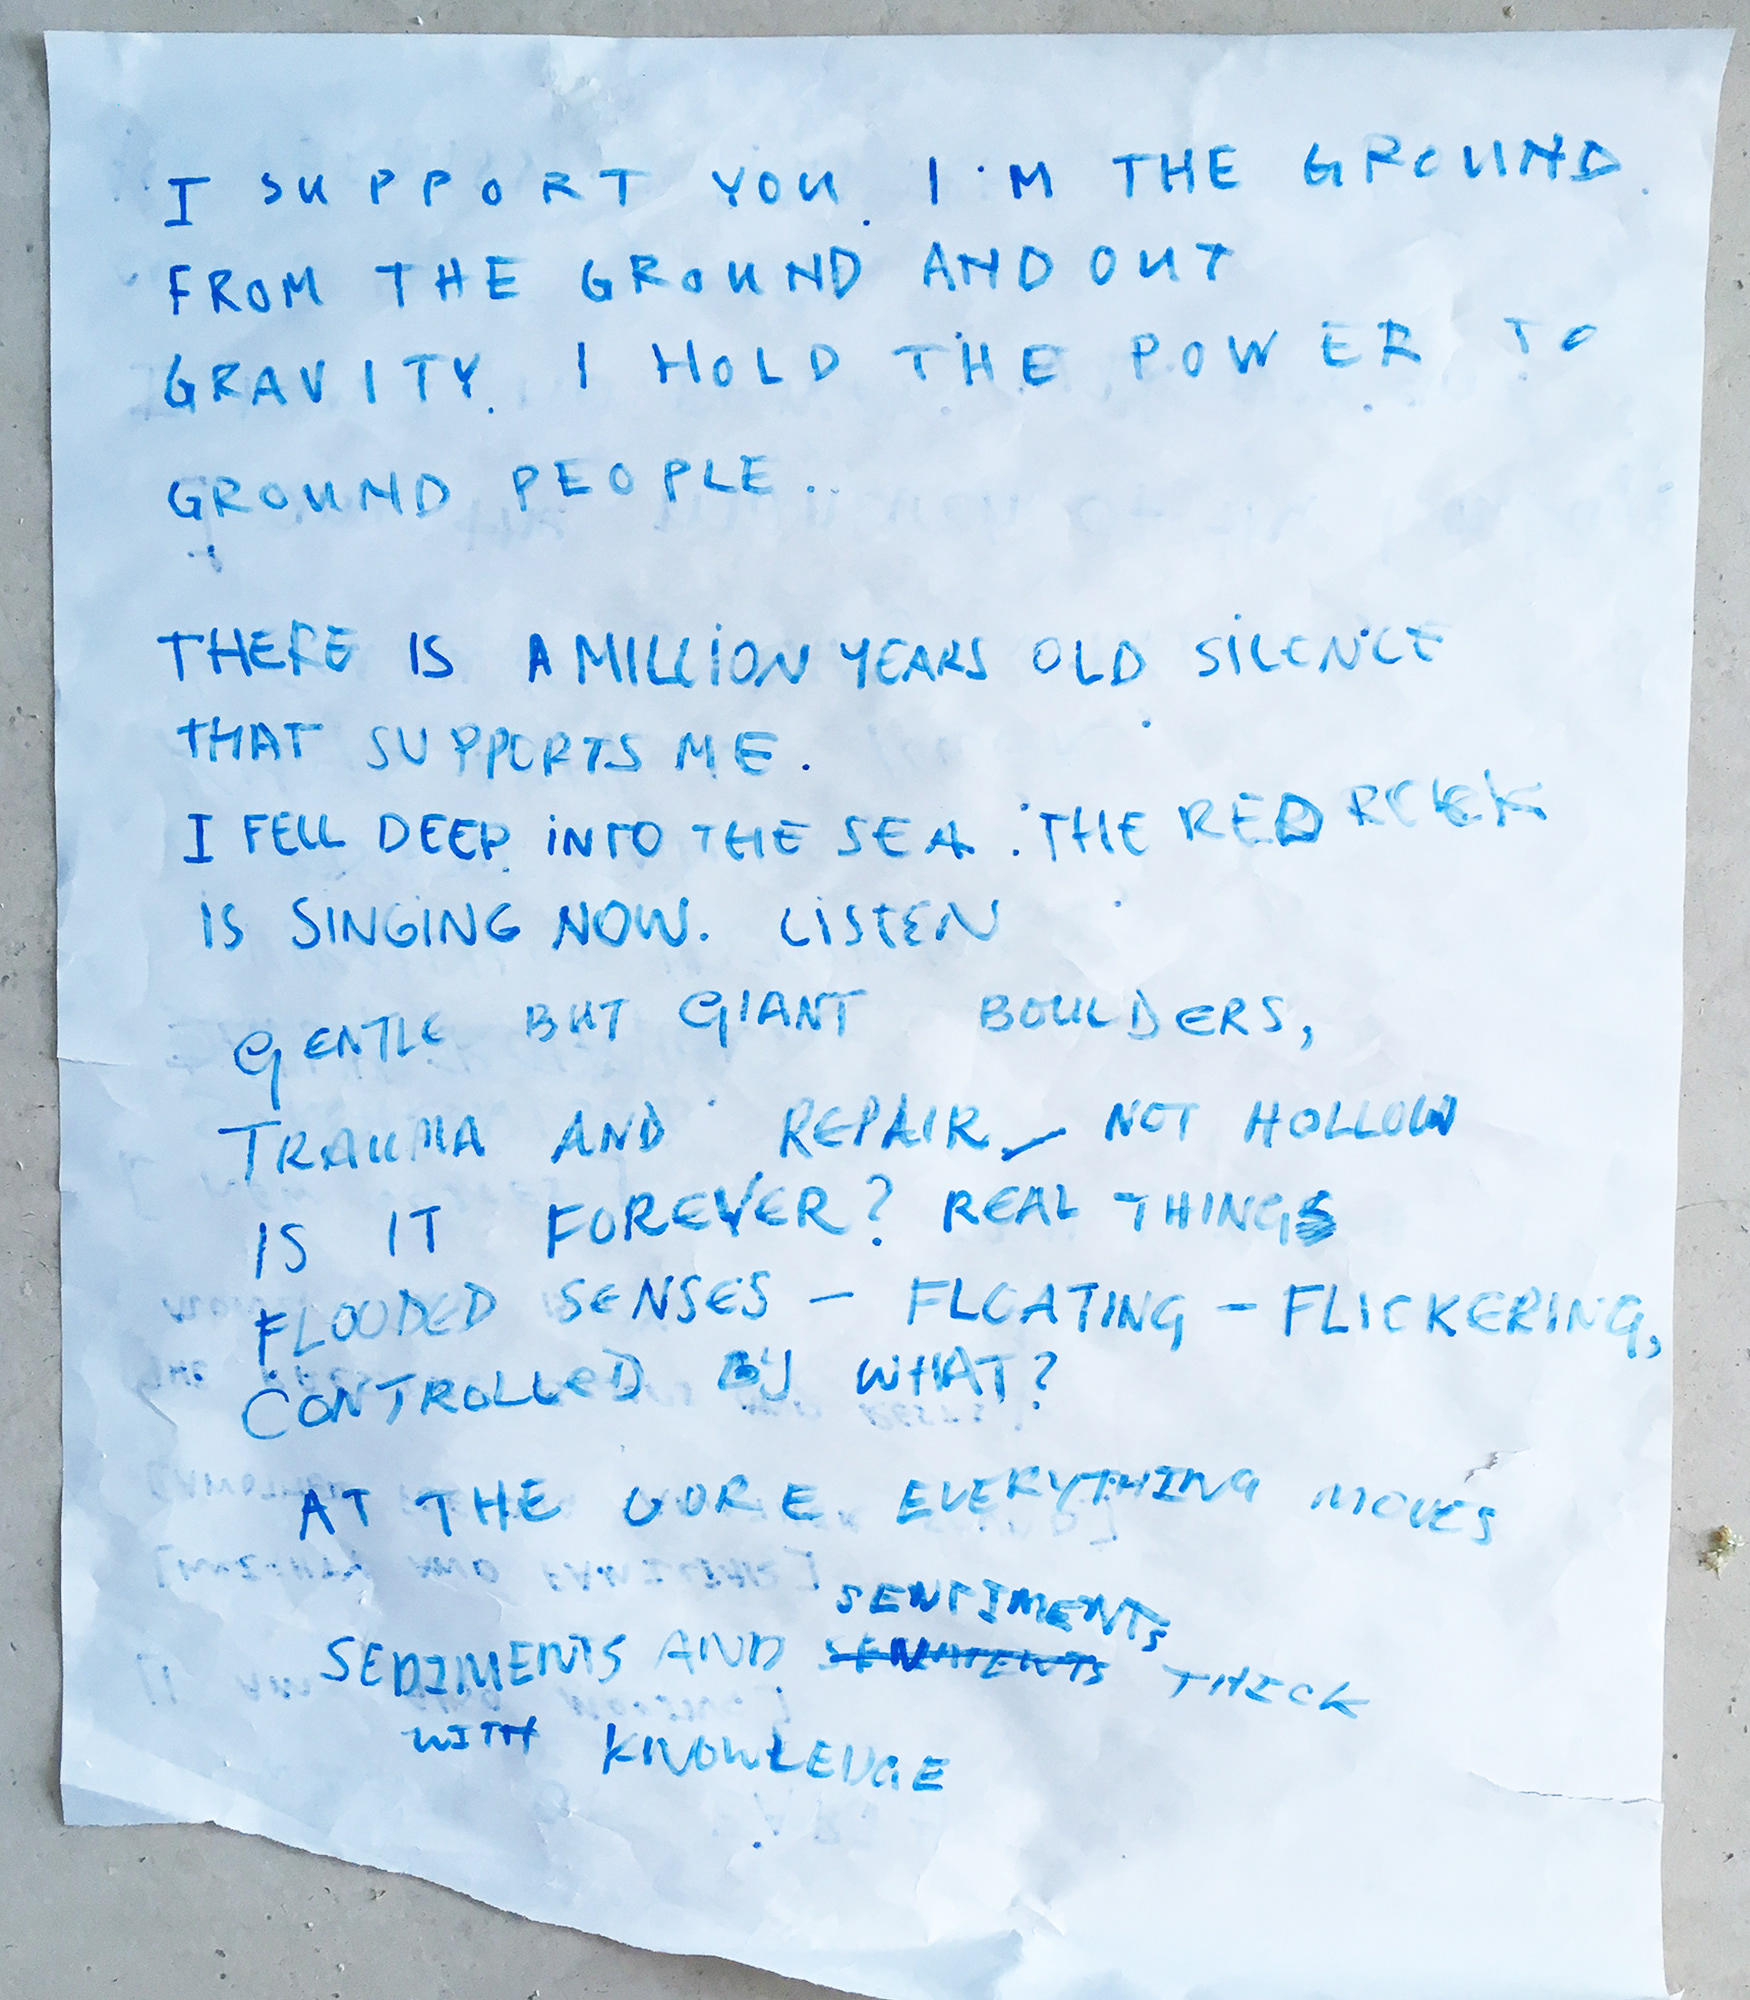 I SUPPORT YOU. I'M THE GROUND.
FROM THE GROUND AND OUT
GRAVITY. I HOLD THE POWER TO
GROUND PEOPLE.
THERE IS A MILLION YEARS OLD SILENCE
THAT SUPPORTS ME.
I FELL DEEP INTO THE SEA. THE RED ROCK
IS SINGING NOW. LISTEN
GENTLE BUT GIANT BOULDERS,
TRAUMA AND REPAIR – NOT HOLLOW
IS IT FOREVER? REAL THINGS
FLOODED SENSES – FLOATING – FLICKERING,
CONTROLLED BY WHAT?
AT THE CORE EVERYTHING MOVES
SENTIMENTS
SEDIMENTS AND THICK
WITH KNOWLEDGE